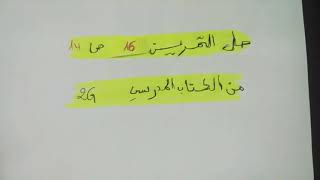 حل التمرين 16 ص 14
من الكتاب المدرسي 2G